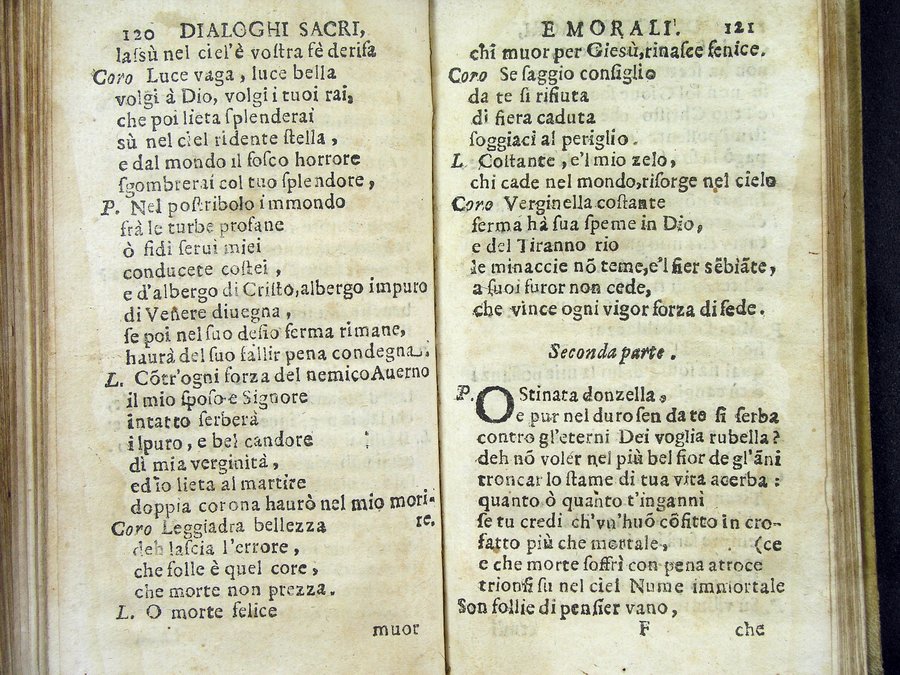 120 DIALOGHI SACRI,
laſsù nel ciel'è voſtra fè deriſa
Coro Luce vaga, luce bella
volgi à Dio, volgi i tuoi rai,
che poi lieta ſplenderai
sù nel ciel ridente ſtella,
e dal mondo il foſco horrore
ſgombrerai col tuo ſplendore,
P. Nel poſtribolo immondo
frà le turbe profane
ò fidi ſerui miei
conducete coſtei,
e d'albergo di Criſto, albergo impuro
di Venere diuegna,
ſe poi nel ſuo deſio ferma rimane,
haurà del ſuo fallir pena condegna.
L. Cõtr'ogni forza del nemico Auerno
il mio ſpoſo e Signore
intatto ſerberà
il puro, e bel candore
di mia verginità,
ed io lieta al martire
doppia corona haurò nel mio mori-
Coro Leggiadra bellezza re.
deh laſcia l'errore,
che folle è quel core,
che morte non prezza.
L. O morte felice
muor
E MORALI. 121
chi muor per Giesù, rinaſce fenice.
Coro Se ſaggio conſiglio
da te ſi rifiuta
di fiera caduta
ſoggiaci al periglio.
L. Coſtante, e'l mio zelo,
chi cade nel mondo, riſorge nel cielo
Coro Verginella coſtante
ferma hà ſua ſpeme in Dio,
e del Tiranno rio
le minaccie nõ teme, e'l fier sẽbiãte,
a ſuoi furor non cede,
che vince ogni vigor forza di fede.
Seconda parte.
P. OStinata donzella,
e pur nel duro ſen da te ſi ſerba
contro gl'eterni Dei voglia rubella?
deh nõ voler nel più bel fior de gl'ãni
troncar lo ſtame di tua vita acerba:
quanto ò quanto t'inganni
ſe tu credi ch'vn'huõ cõfitto in cro-
fatto più che mortale, (ce
e che morte ſoffrì con pena atroce
trionfi ſu nel ciel Nume immortale
Son follie di penſier vano,
F che